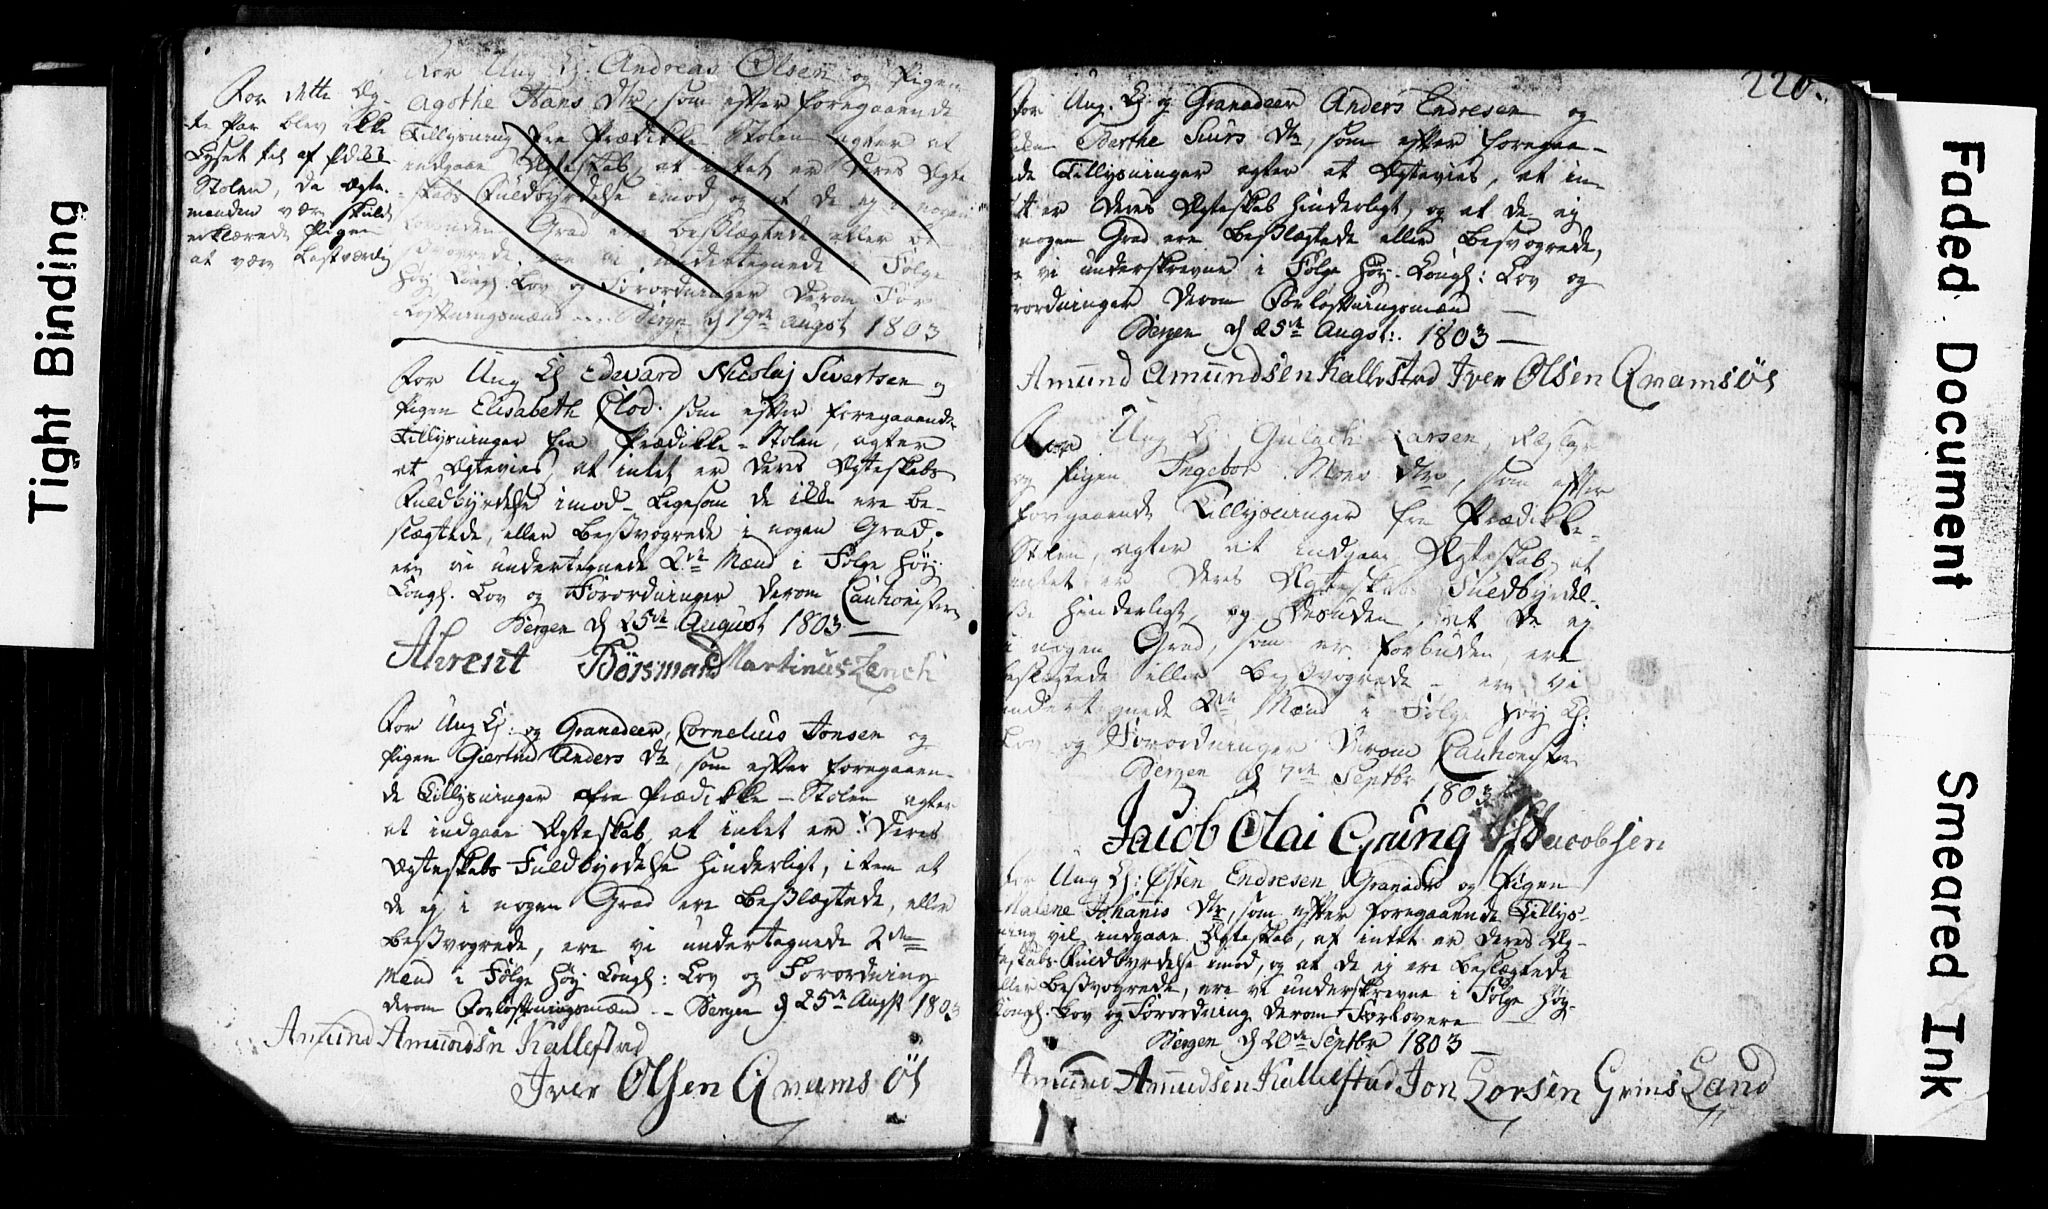 Tight Binding
For dette Æg-
te Par blev ikke
Lyset til af Prædike
Stolen, da Ægte-
manden
erklærede Pigen
at være
For Ung K: Andreas Olsen og Pigen
Agothe Hans Dtr, som efter foregaaende
Tillysning fra Prædikke Stolen agter at
indgaae Ægteskab, at intet er Deres Ægte
skabs Fuldbyrdelse imod, og at de ej i nogen
Grad ere Beslægtede eller Be
svogrede, ere vi undertegnede i Følge
Høy Kongl. Lov og Forordninger derom For
lovtningsmænd Bergen d 19de Augst 1803
For Ung K Edevard Nicolaj Sivertsen og
Pigen Elisabeth Clod. som efter foregaaende
Tillysninger fra Prædikke-Stolen, agter
at Ægtevies, at intet er Deres Ægteskabs
Fuldbyrdelse imod - Ligesom de ikke ere be-
slægtede, eller Besvogrede i nogen Grad,
ere vi undertegnede 2de Mænd i Følge Høy
Kongl. Lov og Forordninger derom Cautionister
Bergen d 25de August 1803 —
Ahrent Børsmand Martinus Lerich
For Ung K: og Granadeer, Cornelius Jonsen og
Pigen Giertrud Anders Dtr, som efter foregaaen-
de Tillysninger fra Prædikke-Stolen agter
at indgaae Ægteskab, at intet er Deres
Ægteskabs Fuldbyrdelse hinderligt, item at
de ej i nogen Grad ere Beslægtede, eller
Besvogrede, ere vi undertegnede 2de
Mænd i Følge Høy Kongl: Lov og Forordning
derom Forlovtningsmænd -- Bergen d 25de Augst 1803
Amund Amundsen Kallestad
Iver Olsen Qvamsøs
220.
For Ung. K: og Granadeer Anders Endresen og
Berthe Siurs Dtr, som efter foregaa-
de Tillysninger agter at Ægtevies, at in-
tet er Deres Ægteskab hinderligt, og at de ej
nogen Grad ere Beslægtede eller Besvogrede,
vi underskrevne i Følge Høy Kongl: Lov og
rordninger derom Forlovtningsmænd —
Bergen d 25de Augst: 1803 —
Amund Amundsen Kallestad Iver Olsen Qvamsøs
For Ung K Gulach Larsen,
og Pigen Ingebor Mons Dtr, som efter
foregaaende Tillysninger fra Prædikke-
Stolen, agter at indgaae Ægteskab, at
intet er Deres Ægteskabs Fuldbyrdel-
se hinderligt og desuden, at de ej
i nogen Grad, som er forbuden, ere
beslægtede eller Besvogrede - ere vi
undertegnede 2de Mænd i Følge Høy K:
Lov og Forordninger derom Cautionister
Bergen d 7de Septbr
1803
Jacob Olai Grung Jacobsen
For Ung K: Østen Endresen Granader og Pigen
Malene Johanis Dtr, som efter foregaaende Tillys-
ning vil indgaae Ægteskab, at intet er Deres Æg-
teskabs Fuldbyrdelse imod, og at de ej ere Beslægtede
eller Besvogrede, ere vi underskrevne i Følge Høy-
Kongl. Lov og Forordning derom Forlovere
Bergen d 20de Septbr 1803 —
Amund Amundsen Kallestad Jon Lorsen Grims Land
Faded Document
Smeared Ink